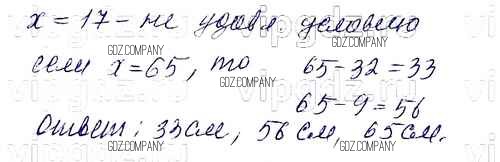 x = 17 – не удовл. условию
GDZ.COMPANY
если x = 65, то 65 – 32 = 33
GDZ.COMPANY GDZ.COMPANY
65 – 9 = 56
GDZ.COMPANY
Ответ: 33 см, 56 см, 65 см.
GDZ.COMPANY GDZ.COMPANY
vipgdz.ru